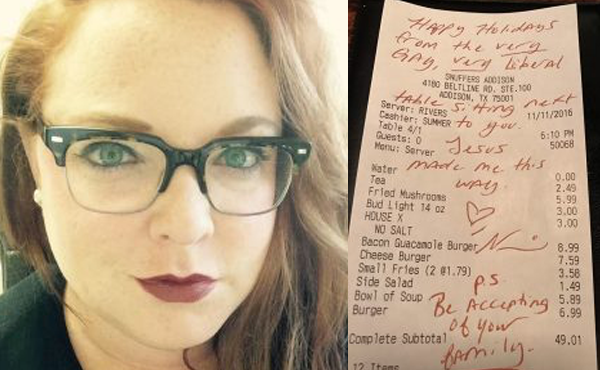 Happy Holidays
from the very
Gay, very Liberal
SNUFFERS ADDISON
4180 BELTLINE RD. STE.100
ADDISON, TX 75001
table sitting next
Server: RIVERS 11/11/2016
Cashier: SUMMER to you.
Table 4/1 6:10 PM
Guests: 0 50068
Jesus
Menu: Server
made me this
Water 0.00
way.
Tea 2.49
Fried Mushrooms 5.99
Bud Light 14 oz 3.00
HOUSE X 3.00
NO SALT
Bacon Guacamole Burger 8.99
Cheese Burger 7.59
Small Fries (2 @1.79) 3.58
p.s.
Side Salad 1.49
Bowl of Soup 5.89
Be Accepting
Burger 6.99
of your
Complete Subtotal 49.01
family.
12 Items